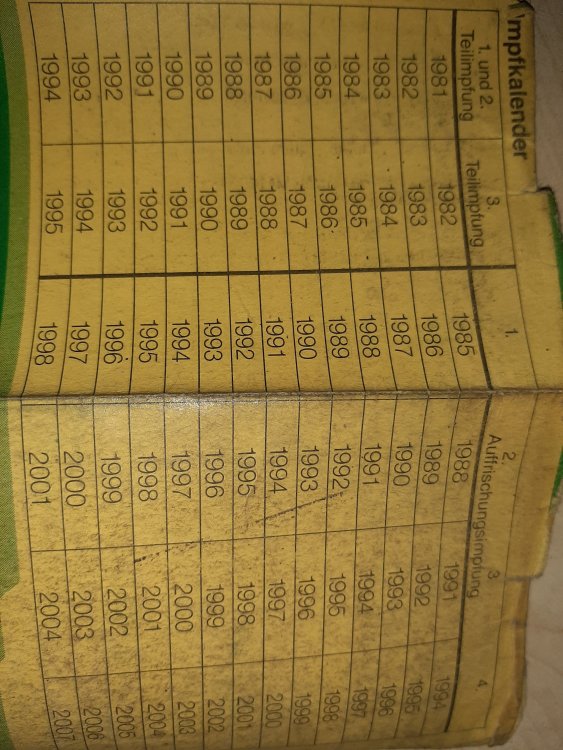 Impfkalender
1. und 2. 3. 1. 2. 3 4.
Teilimpfung Teilimpfung Auffrischungsimpfung
1981 1982 1985 1988 1991 1994
1982 1983 1986 1989 1992 1995
1983 1984 1987 1990 1993 1996
1984 1985 1988 1991 1994 1997
1985 1986 1989 1992 1995 1998
1986 1987 1990 1993 1996 1999
1987 1988 1991 1994 1997 2000
1988 1989 1992 1995 1998 2001
1989 1990 1993 1996 1999 2002
1990 1991 1994 1997 2000 2003
1991 1992 1995 1998 2001 2004
1992 1993 1996 1999 2002 2005
1993 1994 1997 2000 2003 2006
1994 1995 1998 2001 2004 2007